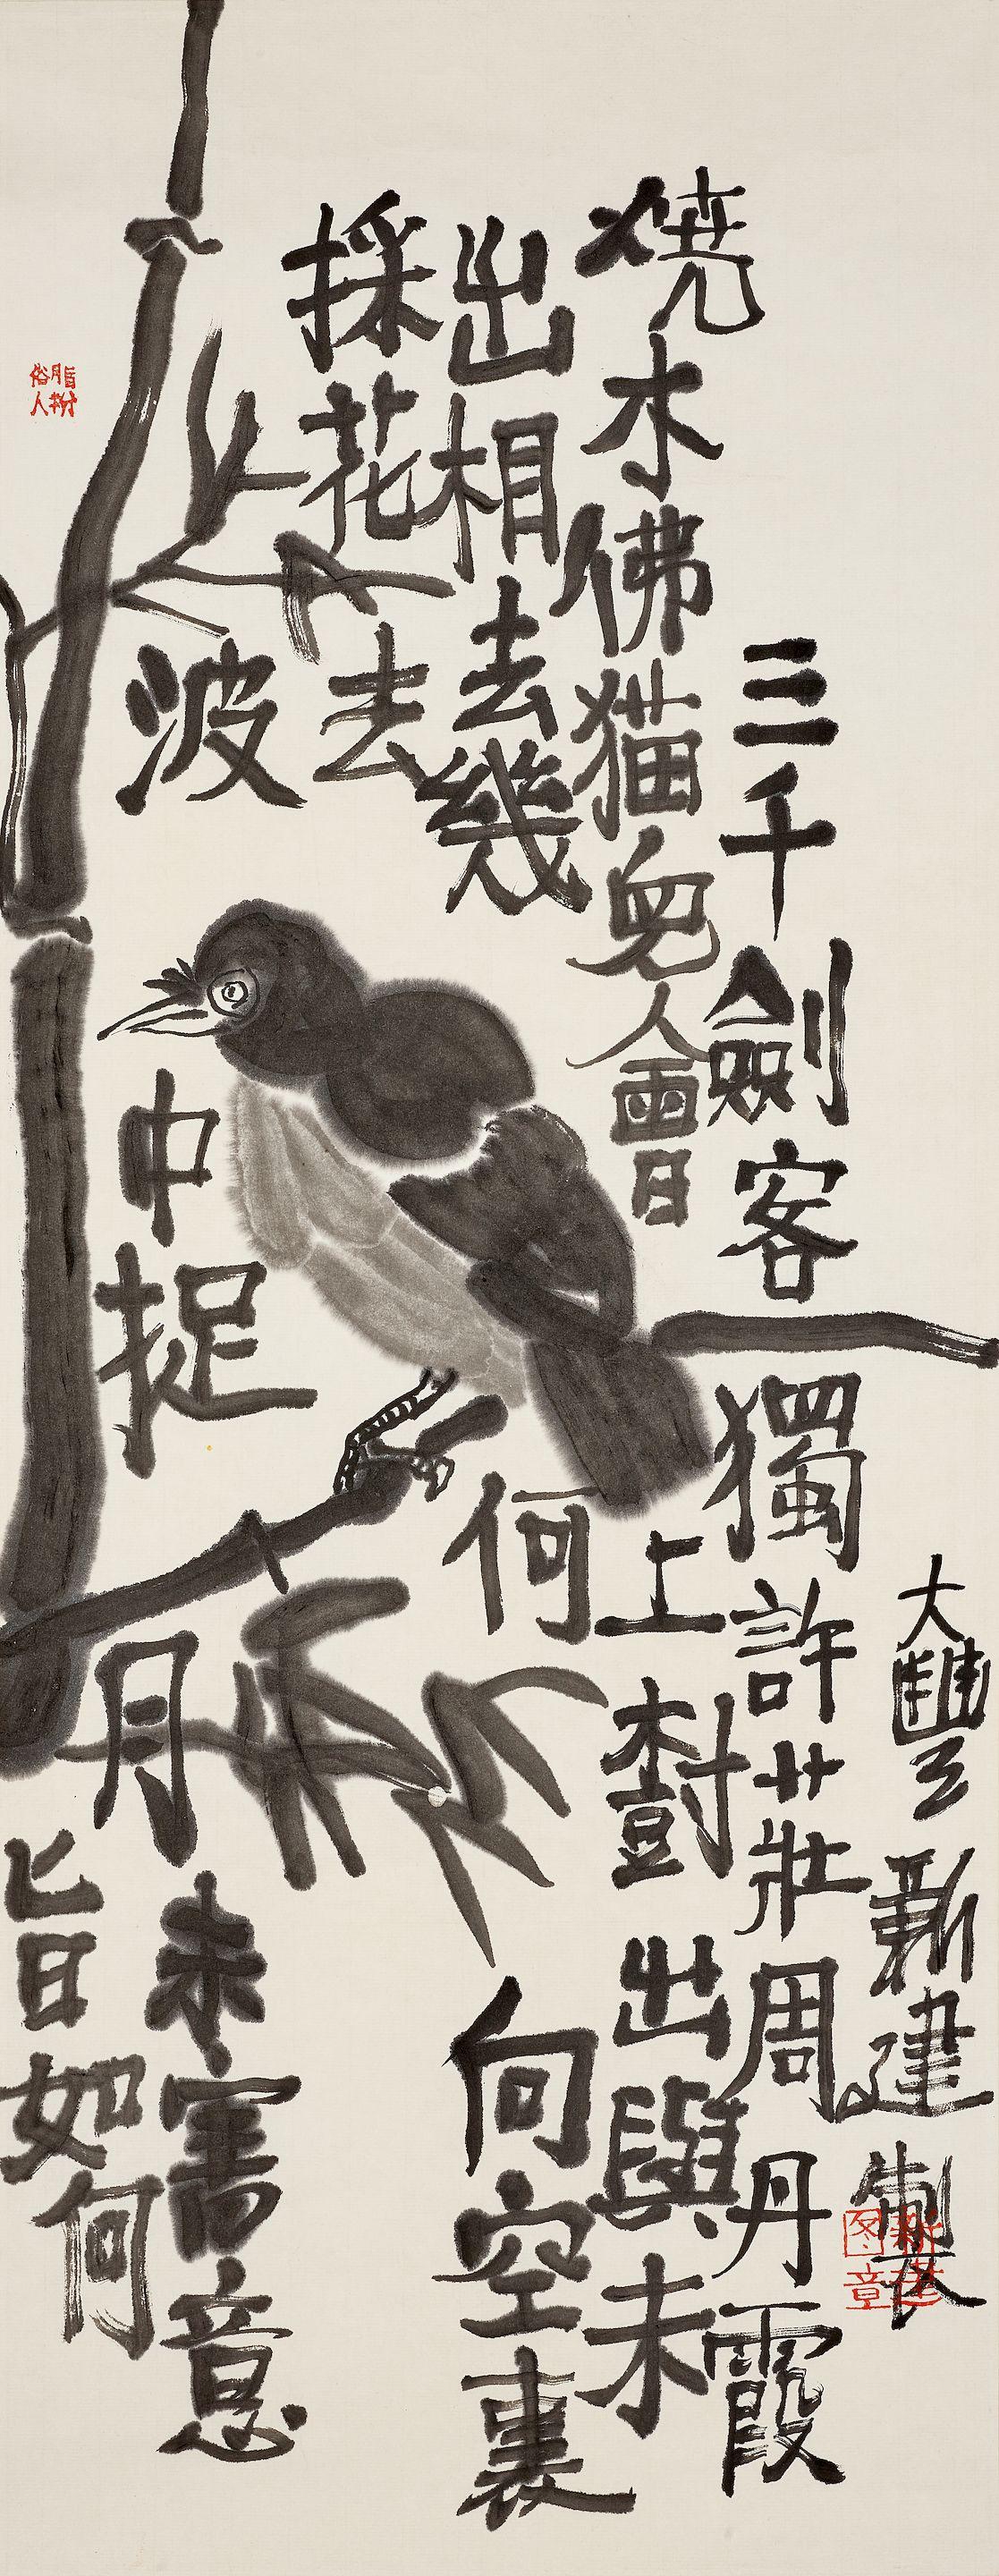 三千劍客獨許莊周丹霞
燒木佛猫兒會上樹出與未
出相去幾何向空裏
採花去
波中捉月未審意
旨如何
大豐新建製
新建图章
脂粉俗人